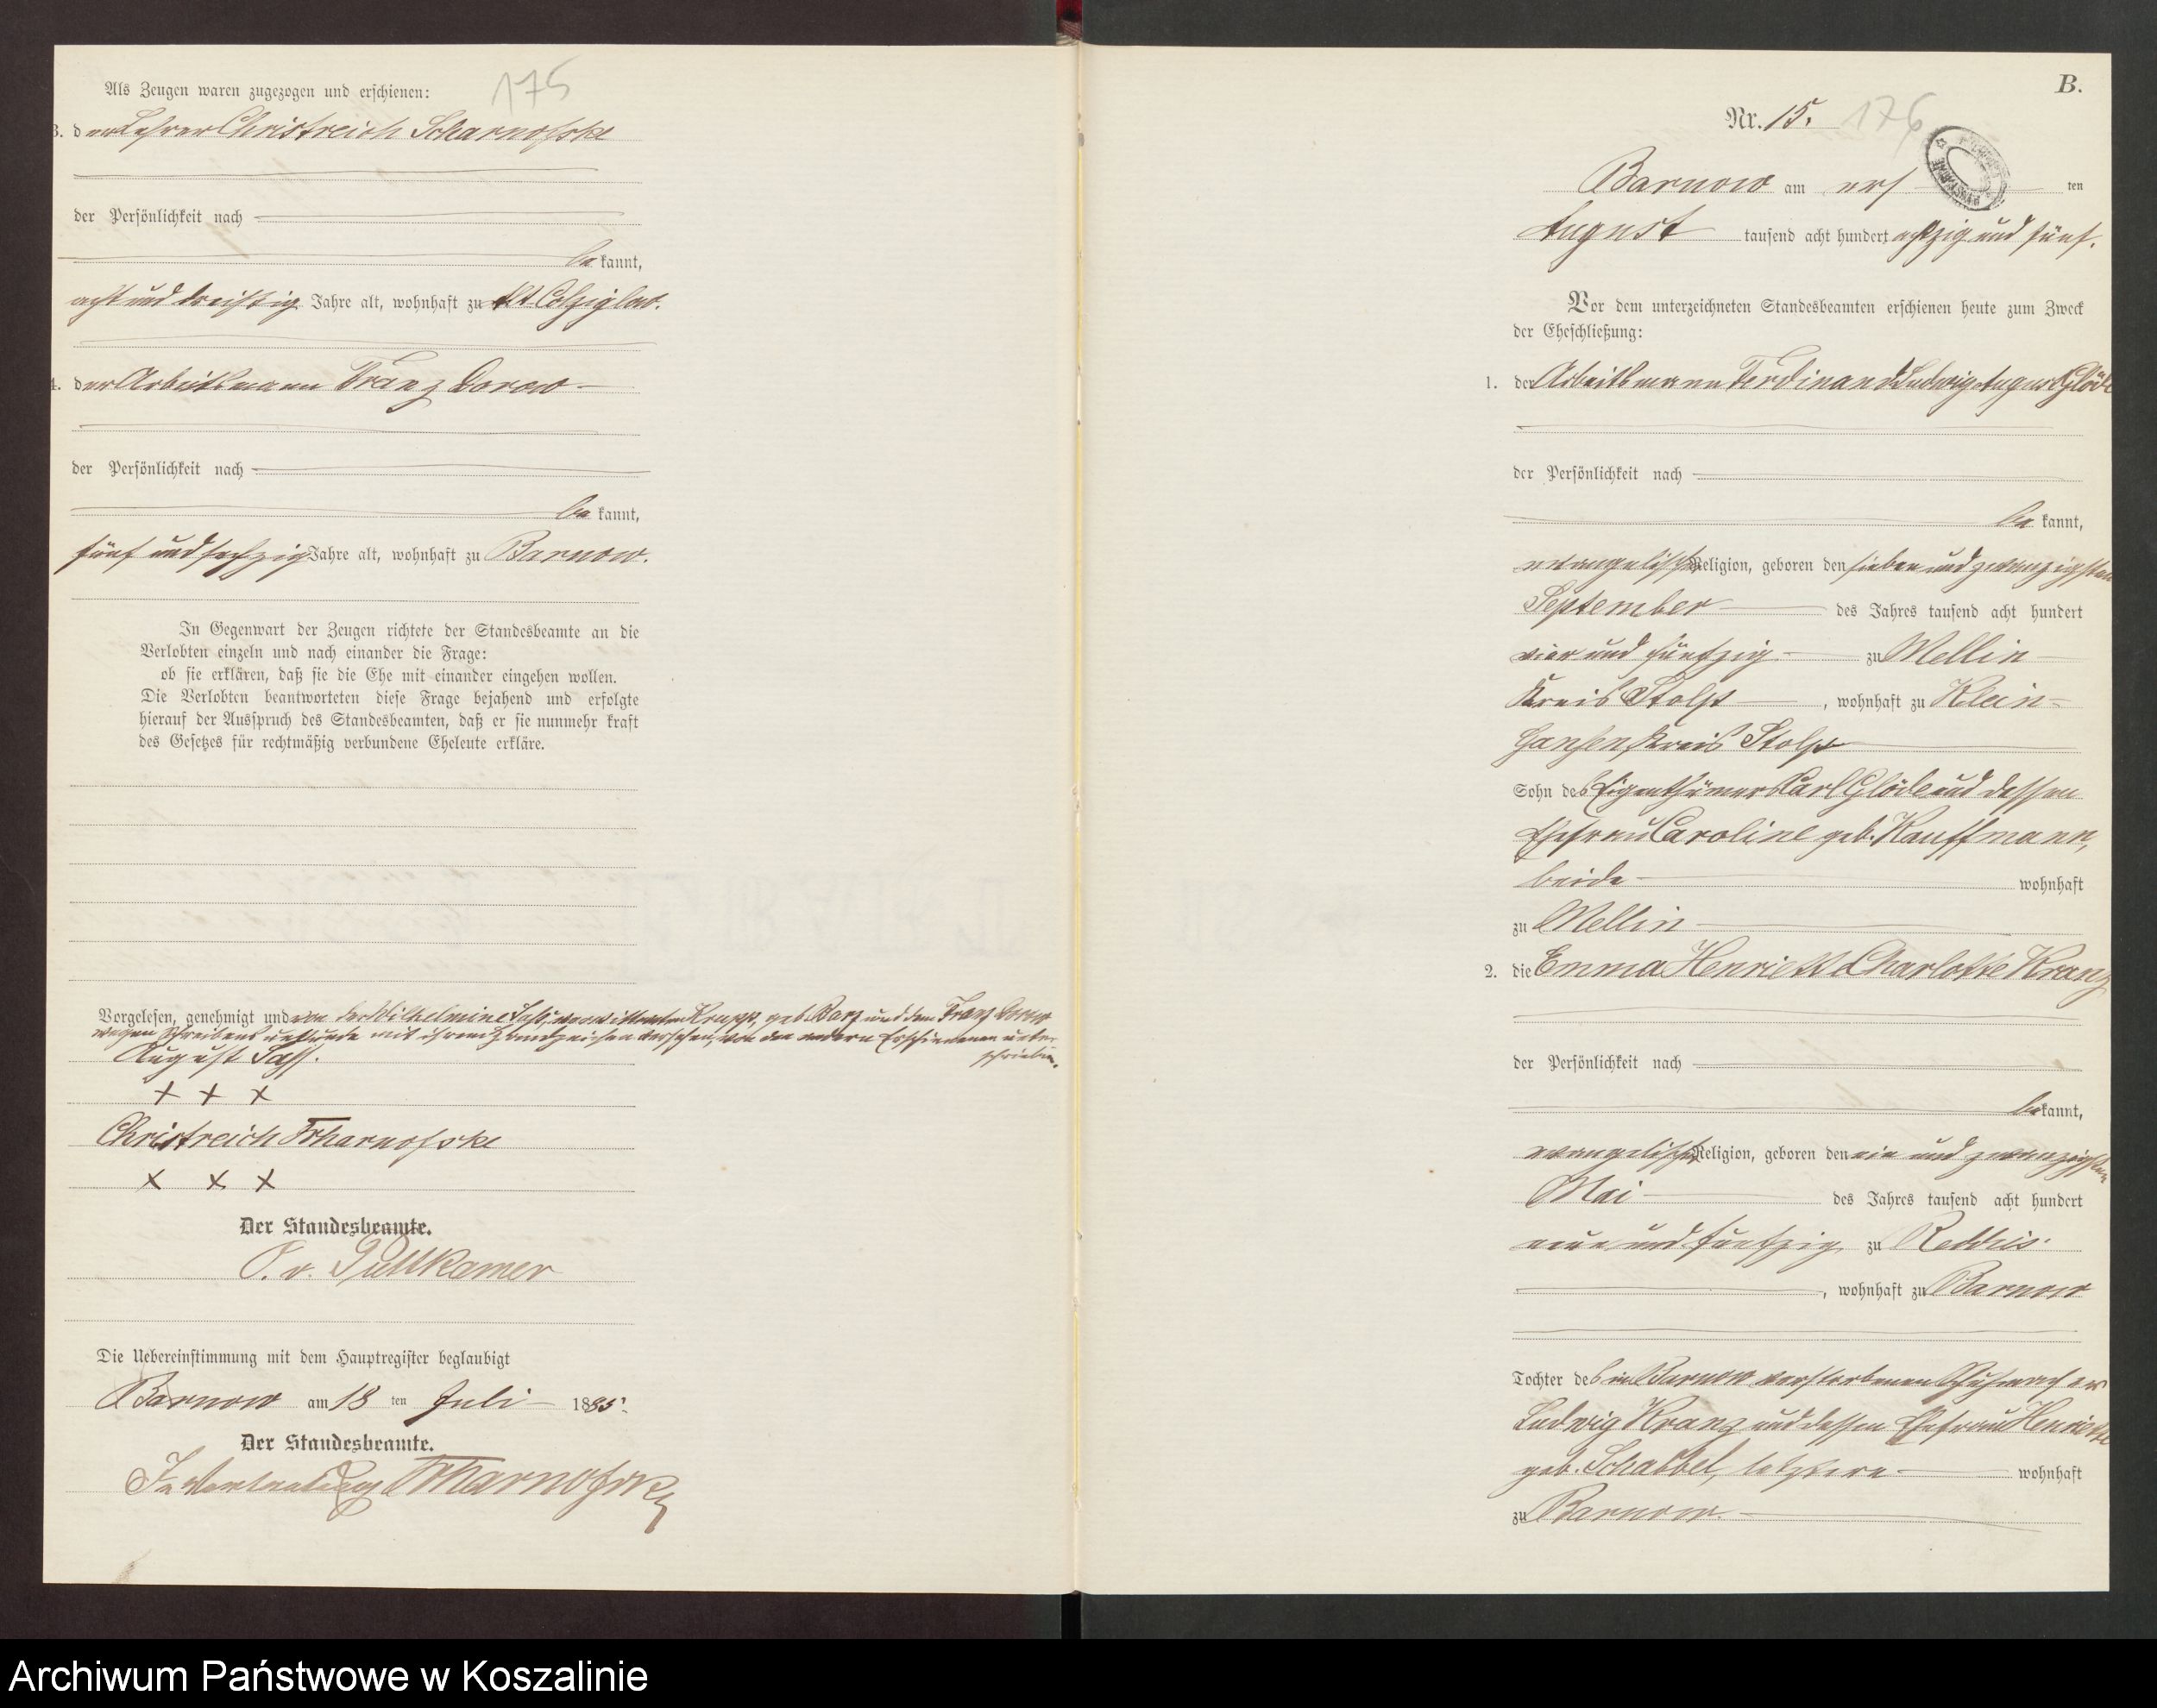 175
Als Zeugen waren zugezogen und erschienen:
3. der Lehrer Christreich Scharnofske
der Persönlichkeit nach
be kannt,
acht und dreißig Jahre alt, wohnhaft zu Alt Colziglow.
4. der Arbeitsmann Franz Dorow
der Persönlichkeit nach
be kannt,
fünf und sechzig Jahre alt, wohnhaft zu Barnow.
In Gegenwart der Zeugen richtete der Standesbeamte an die
Verlobten einzeln und nach einander die Frage:
ob sie erklären, daß sie die Ehe mit einander eingehen wollen.
Die Verlobten beantworteten diese Frage bejahend und erfolgte
hierauf der Ausspruch des Standesbeamten, daß er sie nunmehr kraft
des Gesetzes für rechtmäßig verbundene Eheleute erkläre.
Vorgelesen, genehmigt und von der Wilhelmine Saß, geb. und dem Franz Dorow
wegen Schreibens unkunde mit ihrem Handzeichen versehen, von den andern Erschienenen unter-
schrieben.
August Sass.
+ + +
Christreich Scharnofske
+ + +
Der Standesbeamte.
v. Puttkamer
Die Uebereinstimmung mit dem Hauptregister beglaubigt
Barnow am 18 ten Juli 1885.
Der Standesbeamte.
In Vertretung Scharnofske
B.
Nr. 15. 176
Barnow am ers ten
August tausend acht hundert achtzig und fünf.
Vor dem unterzeichneten Standesbeamten erschienen heute zum Zweck
der Eheschließung:
1. der Arbeitsmann Ferdinand Ludwig August Glöde
der Persönlichkeit nach
be kannt,
evangelischer Religion, geboren den sieben und zwanzigsten
September des Jahres tausend acht hundert
vier und fünfzig zu Mellin
Kreis Stolp, wohnhaft zu Klein-
Gansen Kreis Stolp
Sohn des Eigenthümers Carl Glöde und dessen
Ehefrau Caroline geb. Kauffmann,
beide wohnhaft
zu Mellin
2. die Emma Henriette Charlotte Kranz
der Persönlichkeit nach
be kannt,
evangelischer Religion, geboren den ein und zwanzigsten
Mai des Jahres tausend acht hundert
neun und fünfzig zu Reddis
, wohnhaft zu Barnow
Tochter des in Barnow verstorbenen Schuhmacher
Ludwig Kranz und dessen Ehefrau Henriette
geb. Schabbel, letztere wohnhaft
zu Barnow.
Archiwum Państwowe w Koszalinie